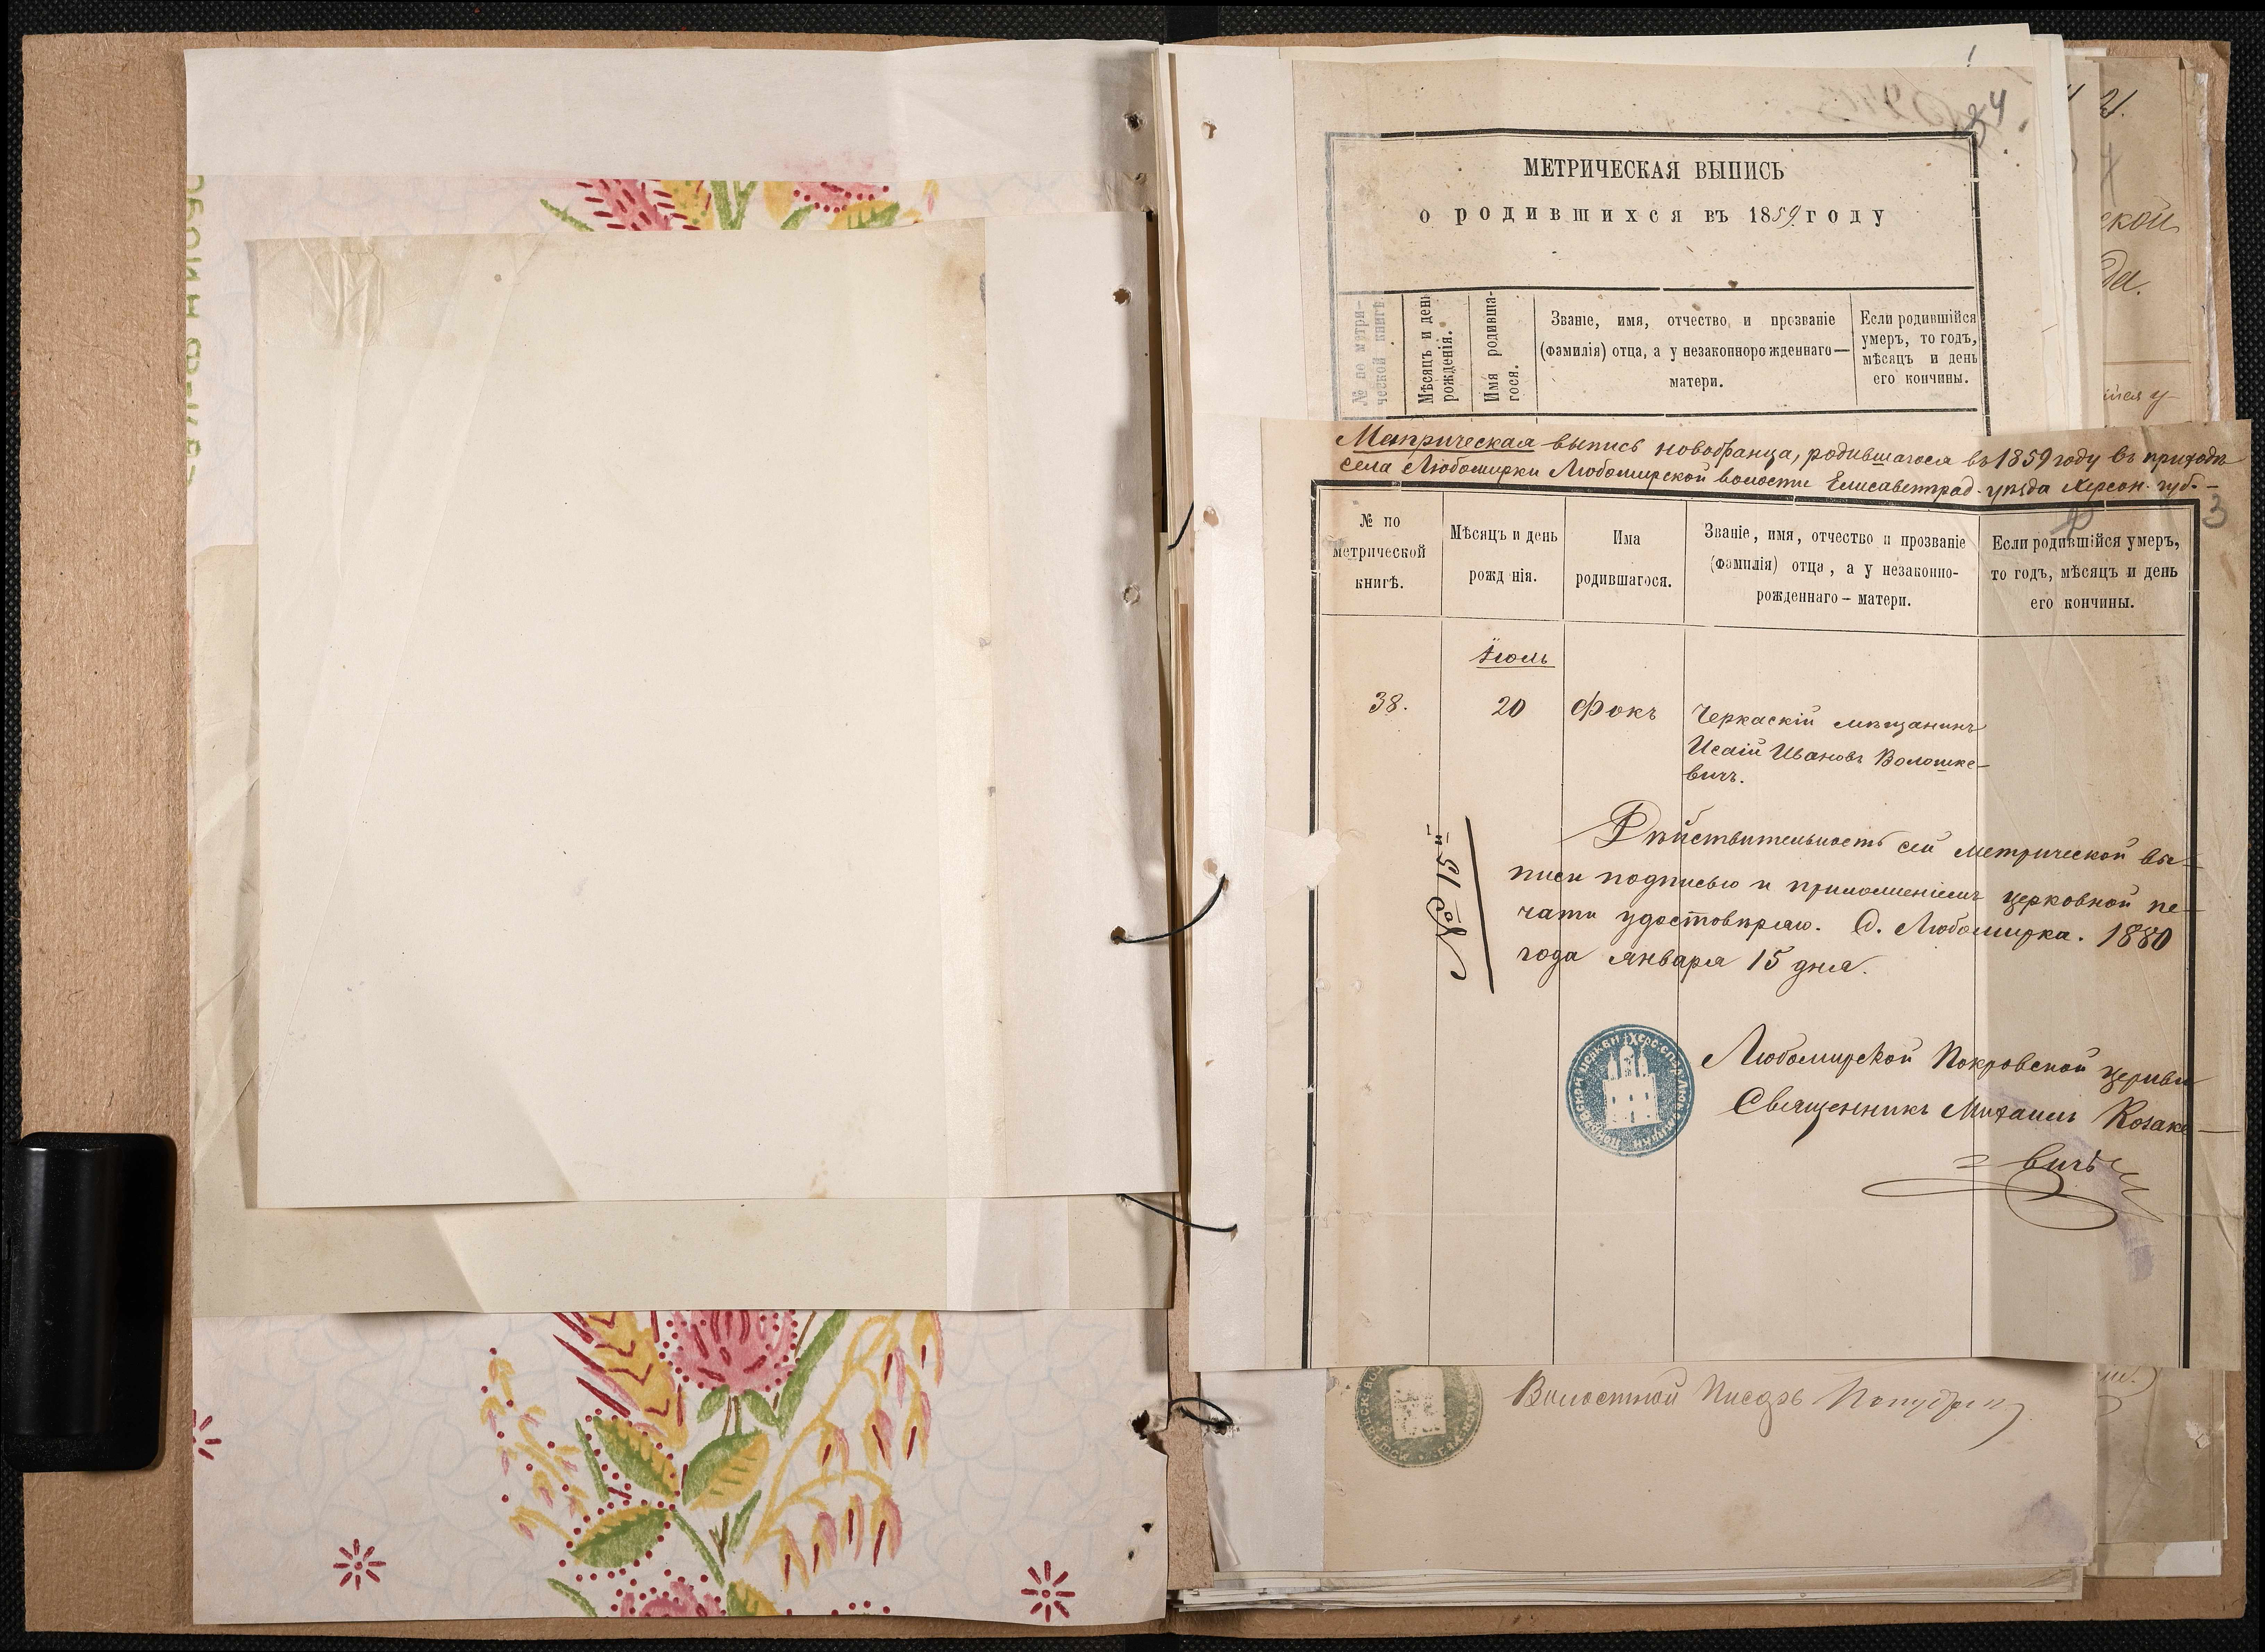 34
МЕТРИЧЕСКАЯ ВЫПИСЬ
о родившихся въ 1859 году
№ по метри-
ческой книгѣ
Мѣсяцъ и день
рожденія.
Имя родивша-
гося.
Званіе, имя, отчество и прозваніе
(фамилія) отца, а у незаконнорожденнаго—
матери.
Если родившійся
умеръ, то годъ,
мѣсяцъ и день
его кончины.
Метрическая выпись новобранца, родившагося въ 1859 году въ приходѣ
села Любомирки Любомирской волости Елисаветград. уѣзда Херсон. губ.—
3
№ по
метрической
книгѣ.
Мѣсяцъ и день
рожд нія.
Има
родившагося.
Званіе, имя, отчество и прозваніе
(фамилія) отца, а у незаконно-
рожденнаго – матери.
Если родившійся умеръ,
то годъ, мѣсяцъ и день
его кончины.
Іюль
38.
20
Фокъ
Черкаскій мѣщанинъ
Исаій Ивановъ Волошке-
вичъ.
№ 15й
Дѣйствительность сей метрической вы-
писи подписью и приложеніемъ церковной пе-
чати удостовѣряю. С. Любомирка. 1880
года января 15 дня.
Любомирской Покровской церкви
Священникъ Михаилъ Козаке-
вичъ
Волостной Писарь
21.
ской
да.